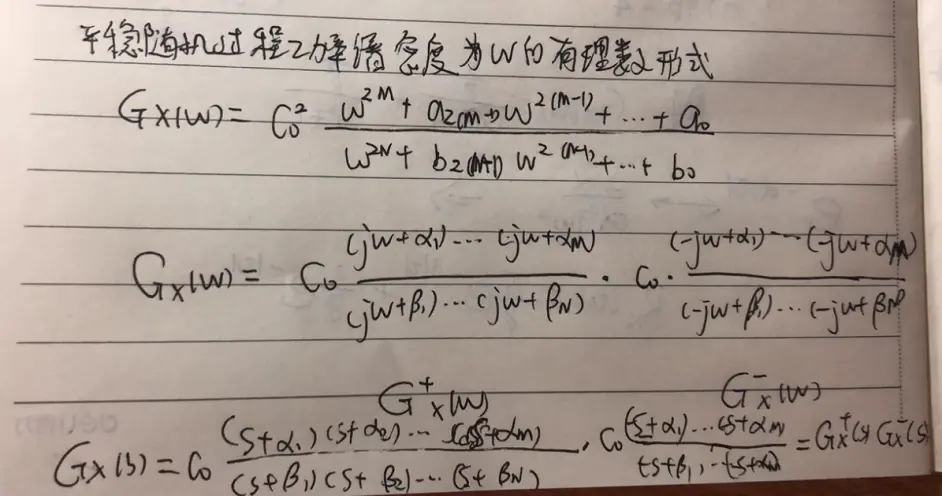 平稳随机过程功率谱密度为W的有理数形式
G_X(ω) = C_0^2 \frac{ω^{2M} + a_{2(M+1)} ω^{2(M-1)} + … + a_0}{ω^{2N} + b_{2(N+1)} ω^{2(N-1)} + … + b_0}
G_X(ω) = C_0 \frac{(jω+α_1) … (jω+α_M)}{(jω+β_1) … (jω+β_N)} · C_0 · \frac{(-jω+α_1) … (-jω+α_M)}{(-jω+β_1) … (-jω+β_N)}
G_X^+(ω) G_X^-(ω)
G_X(s) = C_0 \frac{(s+α_1)(s+α_2) … (s+α_M)}{(s+β_1)(s+β_2) … (s+β_N)} · C_0 \frac{(-s+α_1) … (-s+α_M)}{(-s+β_1) … (-s+α_N)} = G_X^+(s) G_X^-(s)